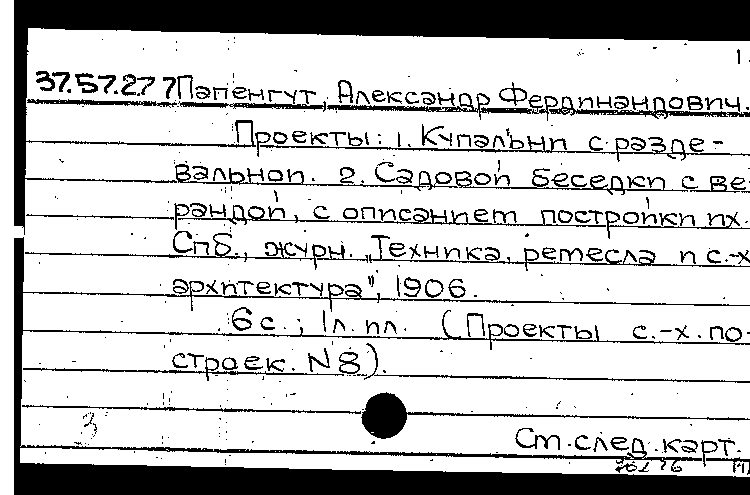 1.
37.57.277 Папенгут, Александр Фердинандович.
Проекты: 1. Купальни с разде-
вальной. 2. Садовой беседки с ве
рандой, с описанием постройки их.
Спб., журн. „Техника, ремесла и с.-х
архитектура", 1906.
6 с.; 1 л. ил. (Проекты с.-х. по-
строек. N 8).
3
Ст. след. карт.